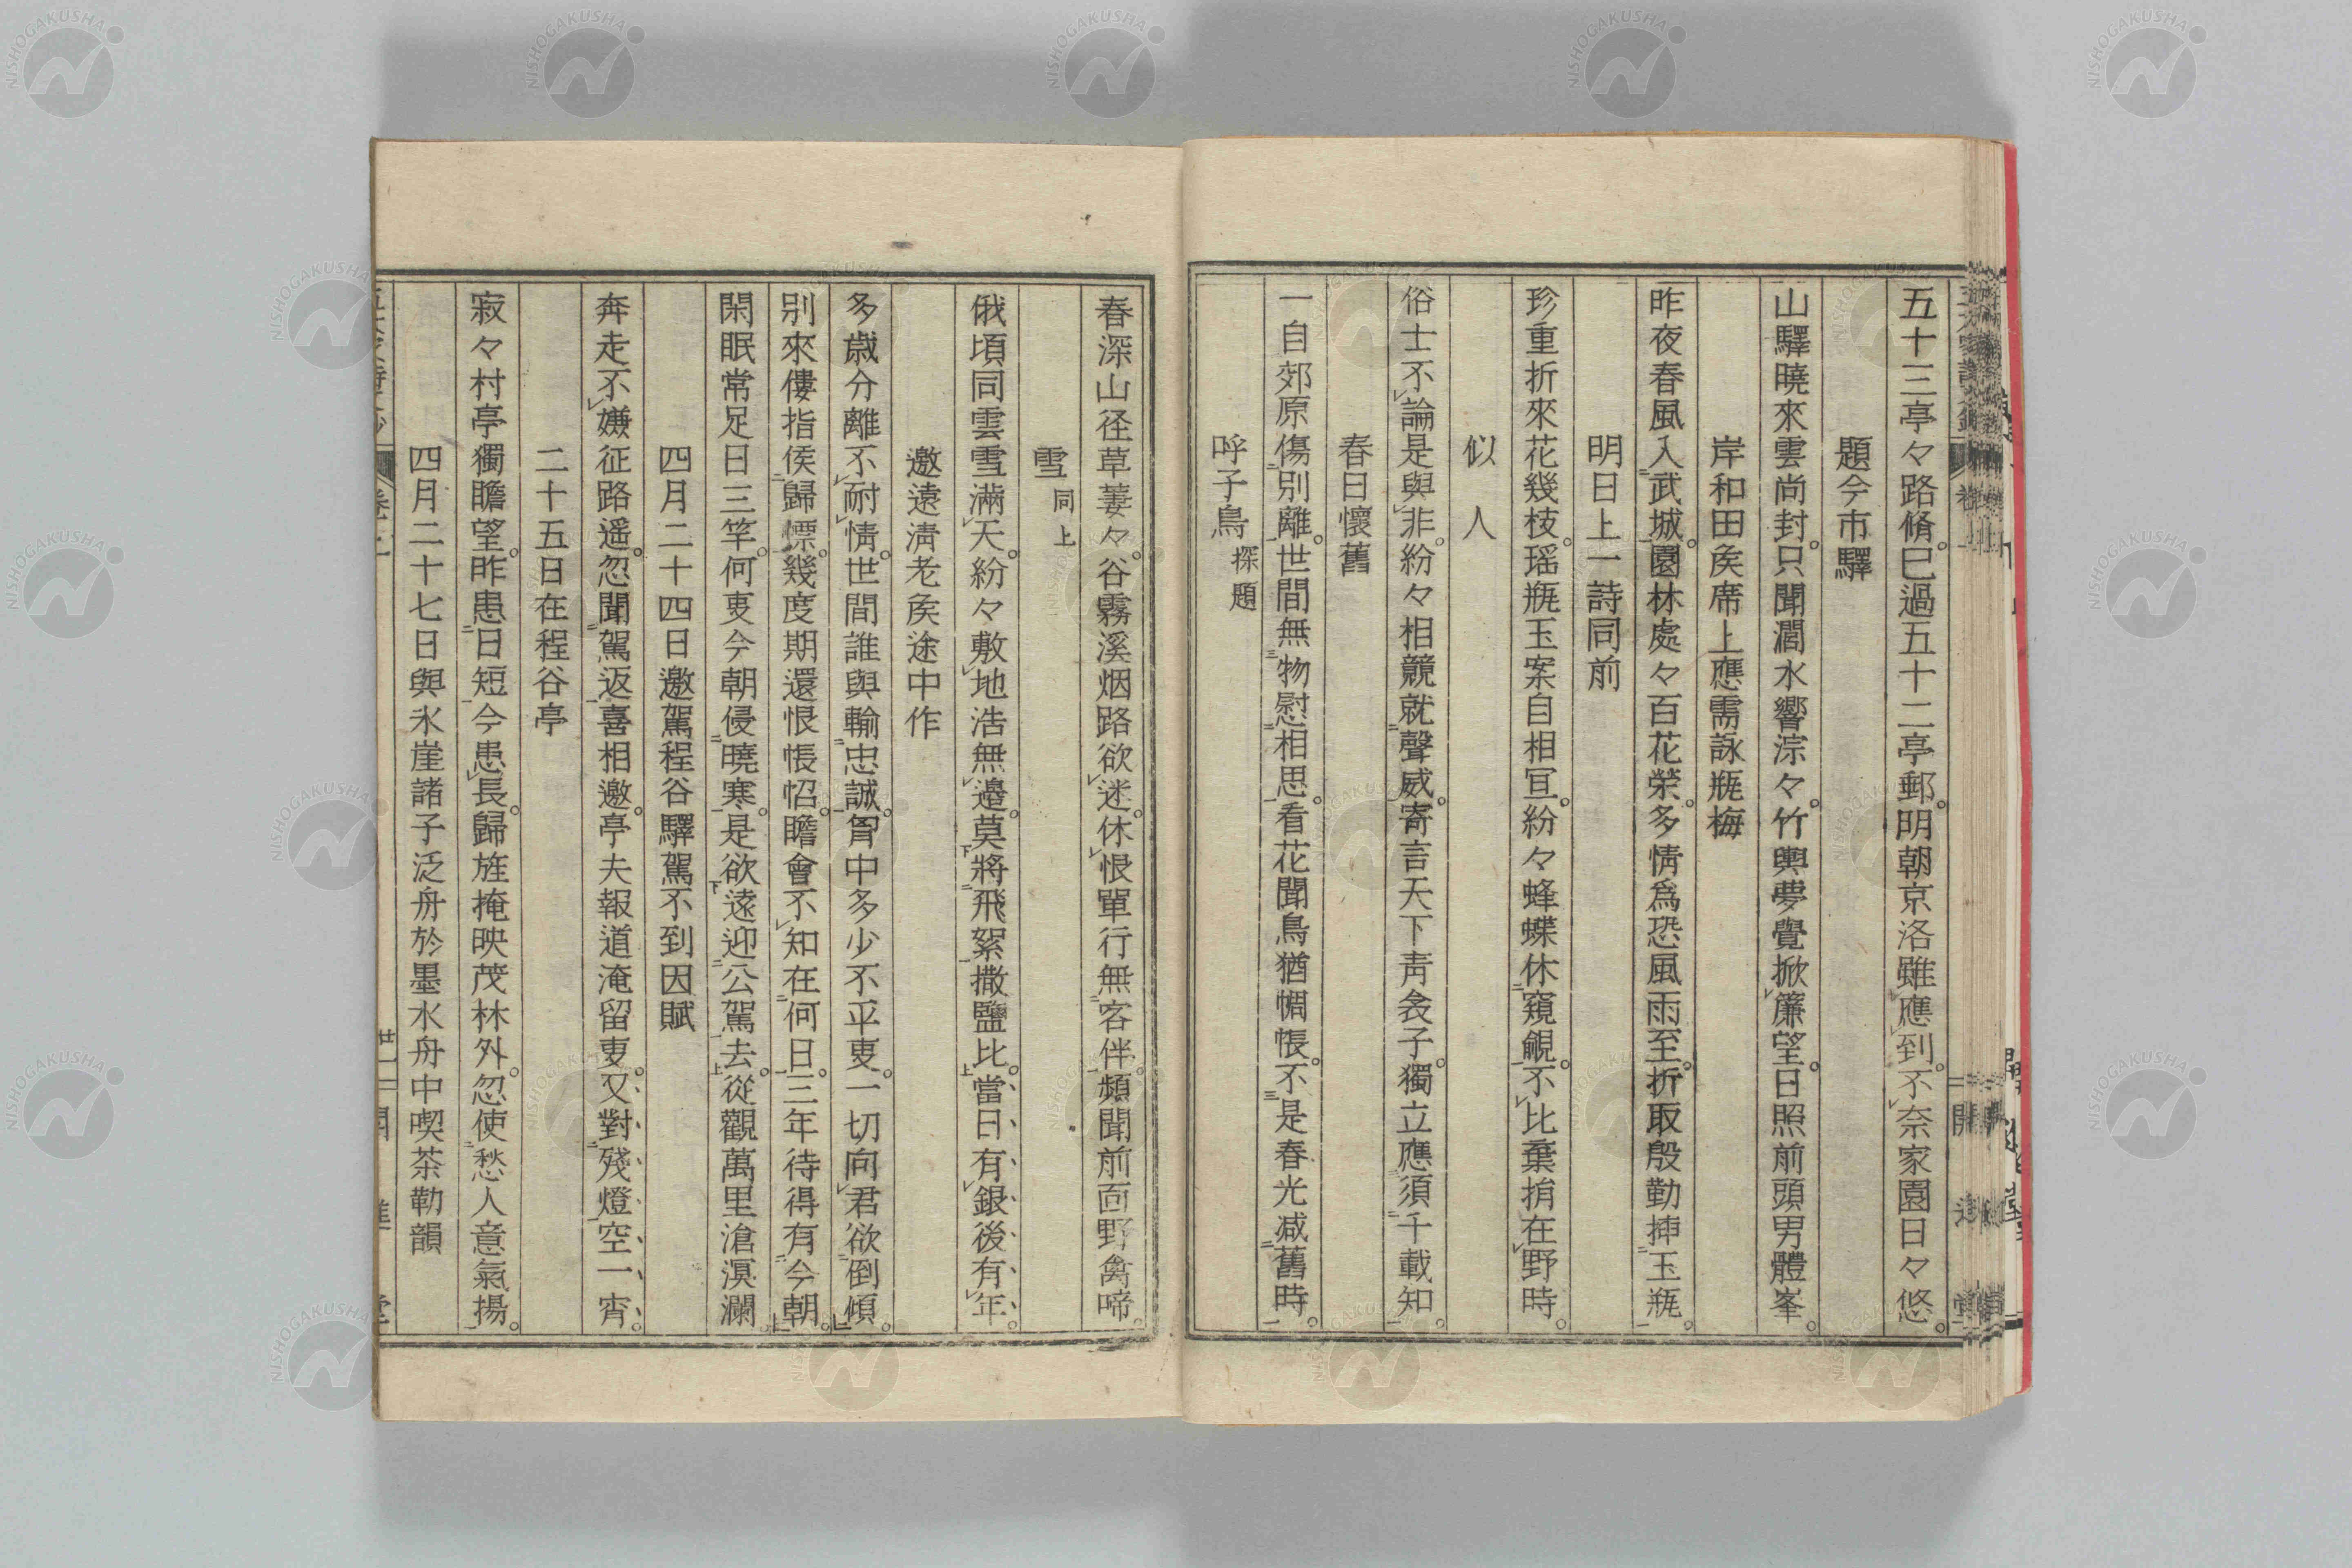 五十三亭々路脩已過五十二亭郵明朝京洛雖應到不奈家園日々悠
題今市驛
山驛曉來雲尚封只聞澗水響淙々竹輿夢覺掀簾望日照前頭男體峯
岸和田矦席上應需詠瓶梅
昨夜春風入武城園林處々百花榮多情爲恐風雨至折取殷勤揷玉瓶
明日上一詩同前
珍重折來花幾枝瑶瓶玉案自相宜紛々蜂蝶休窺覦不比棄捐在野時
似人
俗士不論是與非紛々相競就聲威寄言天下靑衾子獨立應須千載知
春日懷舊
一自郊原傷別離世間無物慰相思看花聞鳥猶惆悵不是春光减舊時
呼子鳥 探題
春深山径草萋々谷霧溪烟路欲迷休恨單行無客伴頻聞前面野禽啼
雪 同上
俄頃同雲雪滿天紛々敷地浩無邊莫將飛絮撒鹽比當日有銀後有年
邀遠淸老矦途中作
多歳分離不耐情世間誰與輸忠誠胷中多少不平吏一切向君欲倒傾
別來僂指俟歸幖幾度期還恨悵怊瞻會不知在何日三年待得有今朝
閑眠常足日三竿何吏今朝侵曉寒是欲遠迎公駕去從觀萬里滄溟瀾
四月二十四日邀駕程谷驛駕不到因賦
奔走不嫌征路遥忽聞駕返喜相邀亭夫報道淹留吏又對殘燈空一宵
二十五日在程谷亭
寂々村亭獨瞻望昨患日短今患長歸旌掩映茂林外忽使愁人意氣揚
四月二十七日與氷崖諸子泛舟於墨水舟中喫茶勒韻